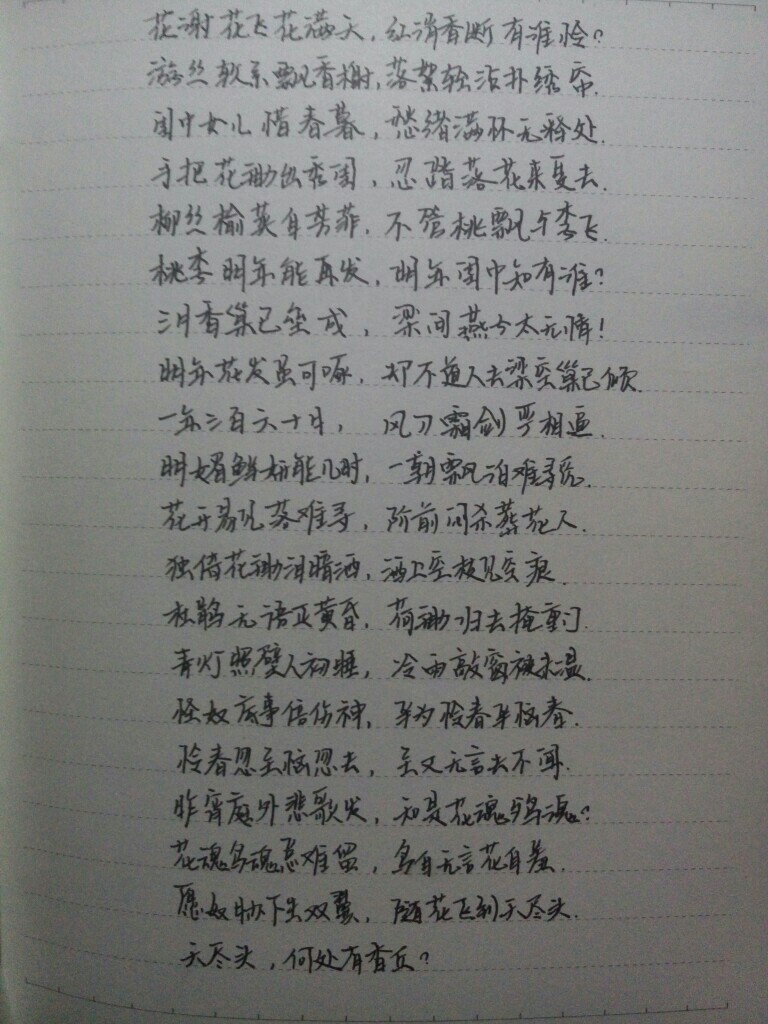 花谢花飞花满天，红消香断有谁怜？
游丝软系飘香榭，落絮轻沾扑绣帘.
闺中女儿惜春暮，愁绪满怀无释处.
手把花锄出秀闺，忍踏落花来复去.
柳丝榆荚自芳菲，不管桃飘与李飞.
桃李明年能再发，明年闺中知有谁？
三月香巢已垒成，梁间燕子太无情！
明年花发虽可啄，却不道人去梁空巢已倾.
一年三百六十日，风刀霜剑严相逼.
明媚鲜妍能几时，一朝飘泊难寻觅.
花开易见落难寻，阶前闷杀葬花人.
独倚花锄泪暗洒，洒上空枝见血痕.
杜鹃无语正黄昏，荷锄归去掩重门.
青灯照壁人初睡，冷雨敲窗被未温.
怪奴底事倍伤神，半为怜春半恼春.
怜春忽至恼忽去，至又无言去不闻.
昨宵庭外悲歌发，知是花魂与鸟魂？
花魂鸟魂总难留，鸟自无言花自羞.
愿奴胁下生双翼，随花飞到天尽头.
天尽头，何处有香丘？